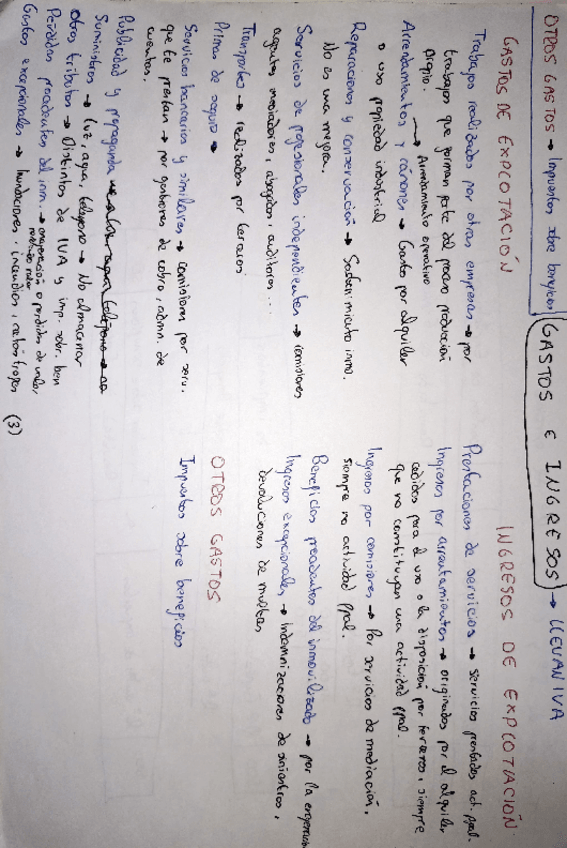 OTROS GASTOS → Impuestos sobre beneficios
GASTOS E INGRESOS → LLEVAN IVA
GASTOS DE EXPLOTACIÓN
Trabajos realizados por otras empresas → por
trabajos que forman parte del proceso producción
propio.
→ Arrendamiento operativo
Arrendamientos y cánones → Gasto por alquiler
o uso propiedad industrial
Reparaciones y conservación → Sostenimiento inmo.
No es una mejora.
Servicios de profesionales independientes → comisiones
agentes mediadores, abogados, auditores...
Transportes → realizados por terceros
Primas de seguro →
Servicios bancarios y similares → comisiones por serv.
que te prestan → por gestiones de cobro, admn. de
cuentas.
Publicidad y propaganda
Suministros → Luz, agua, teléfono → No almacenar
Otros tributos → Distintos de IVA y imp. sobr. ben
Pérdidas procedentes del inm. → enajenación o perdidas de valor,
Gastos excepcionales → Inundaciones, incendios, catástrofes
(3)
INGRESOS DE EXPLOTACIÓN
Prestaciones de servicios → servicios prestados act. ppal.
Ingresos por arrentamientos → originados por el alquiler
cedidos para el uso o la disposición por terceros, siempre
que no constituyen una actividad ppal.
Ingresos por comisiones → Por servicios de mediación,
siempre no actividad ppal.
Beneficios procedentes del inmovilizado → por la enajenación
Ingresos excepcionales → Indemnizaciones de siniestros,
devoluciones de multas
OTROS GASTOS
Impuestos sobre beneficios